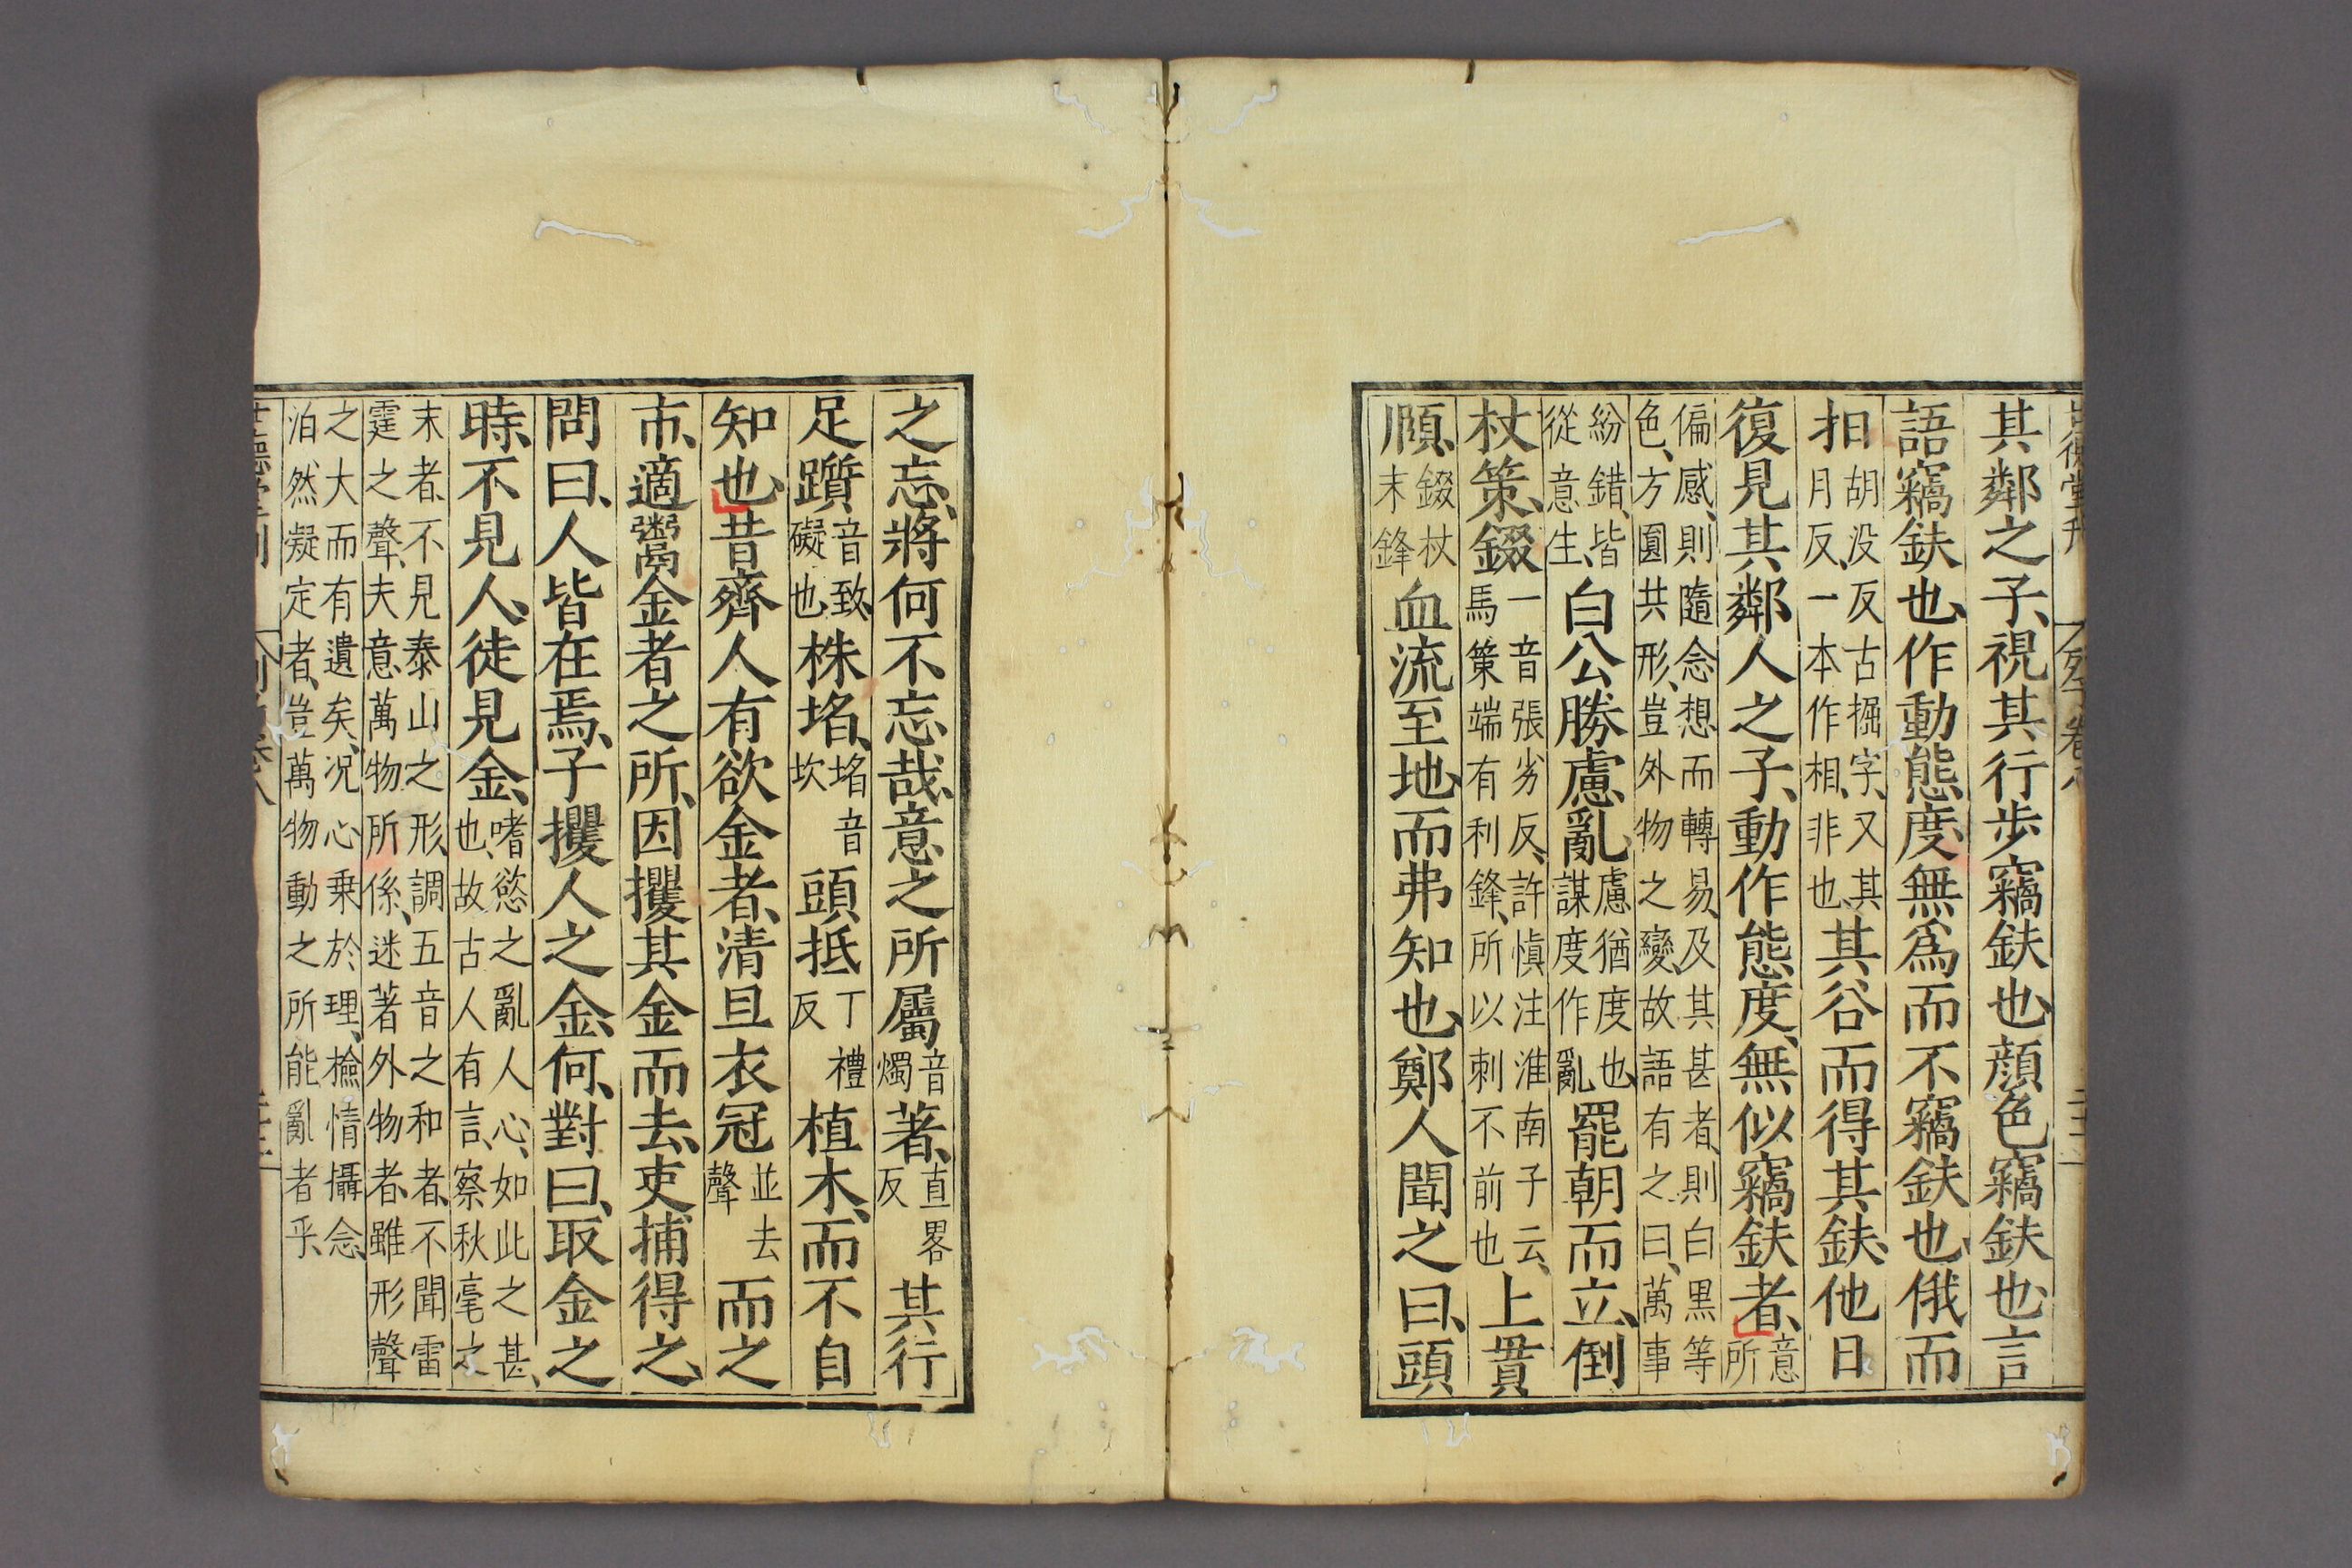 其鄰之子、視其行步竊鈇也、顔色竊鈇也、言
語竊鈇也、作動態度、無爲而不竊鈇也、俄而
抇胡没反古掘字、又其月反、一本作相、非也、其谷而得其鈇、他日
復見其鄰人之子、動作態度、無似竊鈇者、意所
偏感、則隨念想而轉易、及其甚者、則白黒等色、方圓共形、豈外物之變、故語有之曰、萬事
紛錯、皆從意生、白公勝慮亂、慮猶度也、謀度作亂罷朝而立、倒
杖策、錣一音張劣反、許慎注淮南子云、馬策端有利鋒、所以刺不前也上貫
頤、錣杖末鋒血流至地、而弗知也、鄭人聞之曰、頭
之忘、將何不忘哉、意之所屬音燭著、直畧反其行
足躓音致、礙也株埳、埳音坎頭抵丁禮反植木、而不自
知也、昔齊人有欲金者、清旦衣冠並去聲而之
市、適鬻金者之所、因攫其金而去、吏捕得之、
問曰、人皆在焉、子攫人之金、何、對曰、取金之
時、不見人、徒見金、嗜慾之亂人心、如此之甚、也、故古人有言、察秋毫之
末者、不見泰山之形、調五音之和者、不聞雷霆之聲、夫意萬物所係、迷著外物者、雖形聲
之大而有遺矣、况心乗於理、檢情攝念、泊然凝定者、豈萬物動之所能亂者乎、